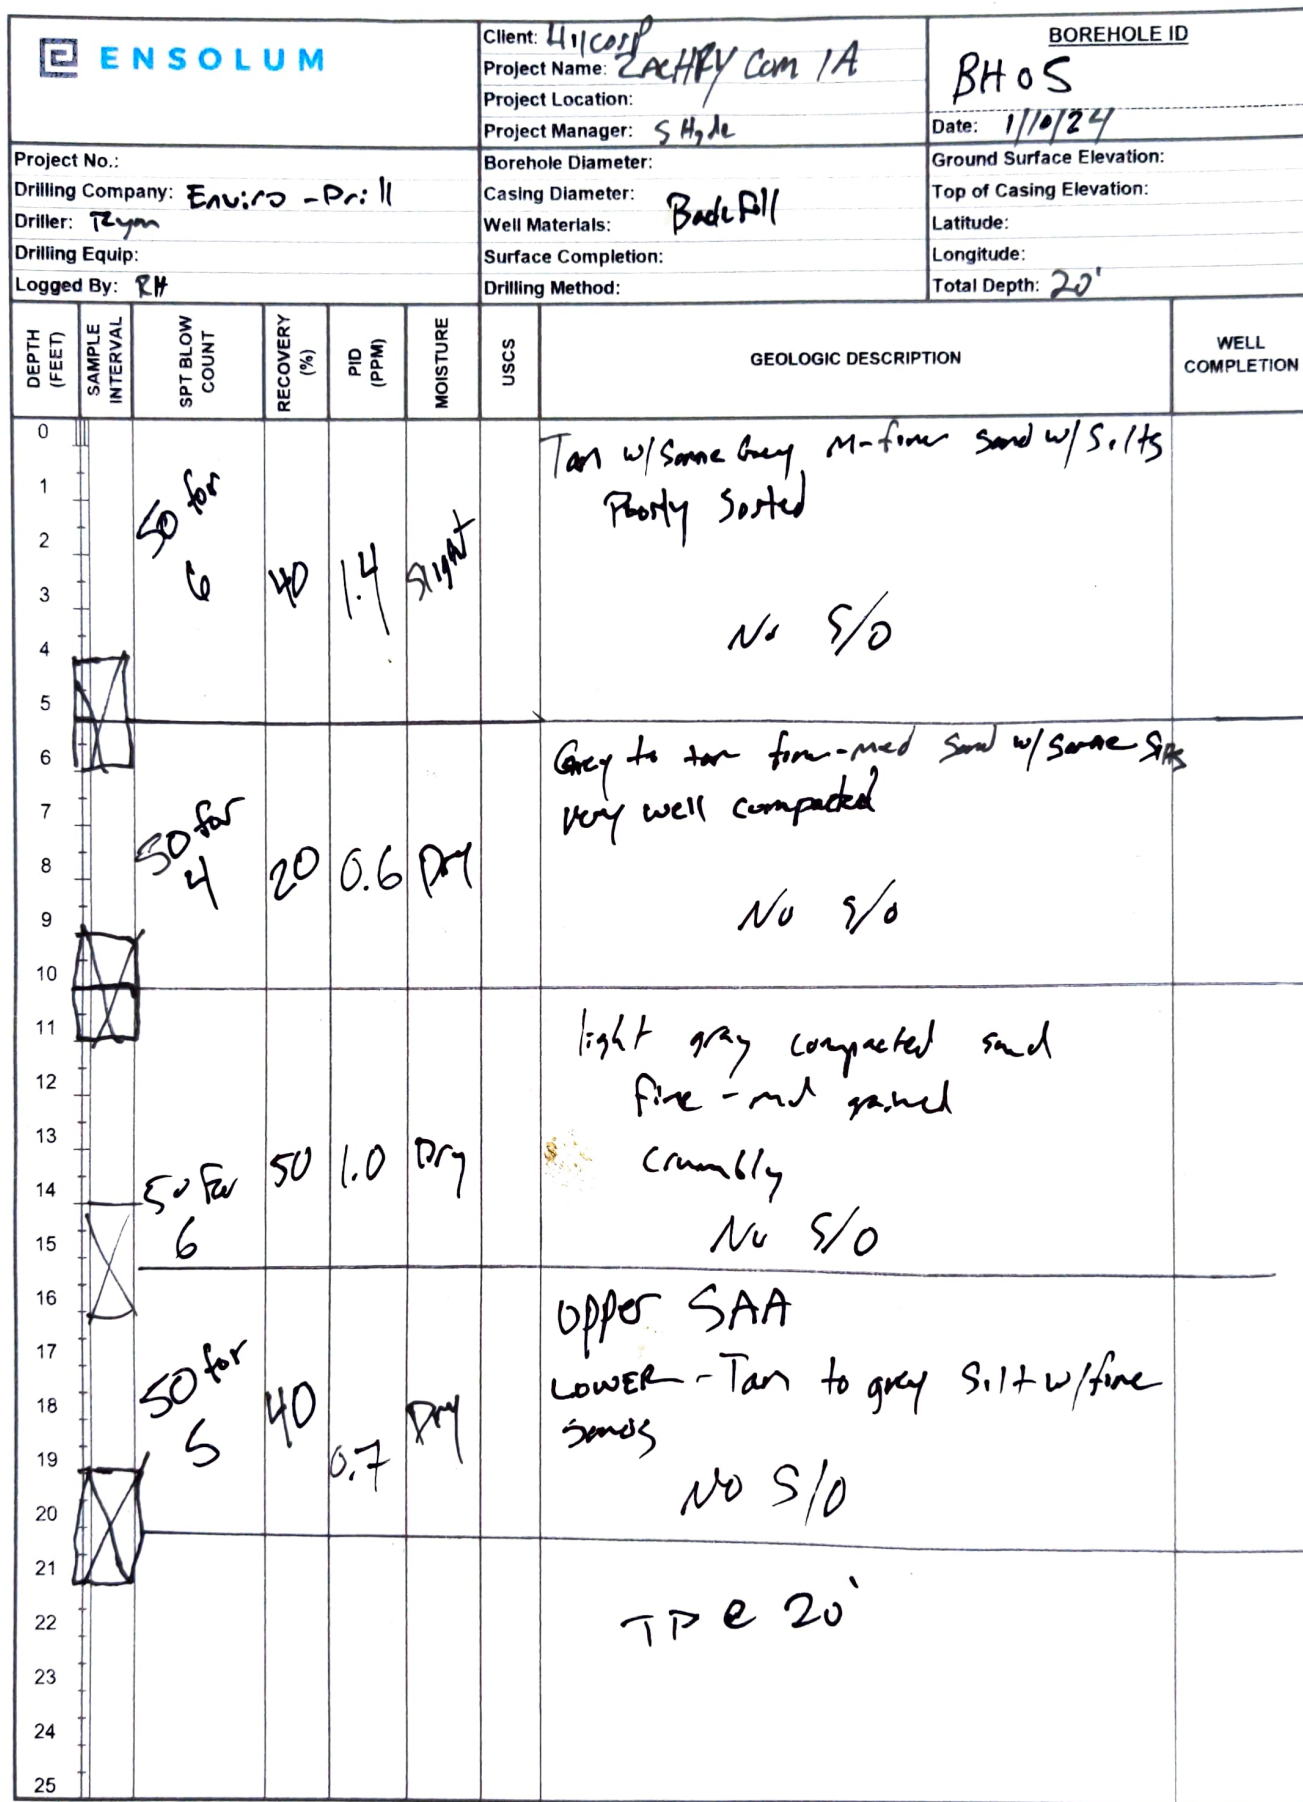 ENSOLUM
Client: Hilcorp
Project Name: ZACHRY Com 1A
Project Location:
Project Manager: S Hyde
BOREHOLE ID
BH05
Date: 1/10/24
Project No.:
Drilling Company: Enviro-Drill
Driller: Ryan
Drilling Equip:
Logged By: RH
Borehole Diameter:
Casing Diameter:
Well Materials: Backfill
Surface Completion:
Drilling Method:
Ground Surface Elevation:
Top of Casing Elevation:
Latitude:
Longitude:
Total Depth: 20'
DEPTH (FEET)
SAMPLE INTERVAL
SPT BLOW COUNT
RECOVERY (%)
PID (PPM)
MOISTURE
USCS
GEOLOGIC DESCRIPTION
WELL COMPLETION
0
1
2
3
4
5
6
7
8
9
10
11
12
13
14
15
16
17
18
19
20
21
22
23
24
25
50 for
6
40
1.4
Slight
Tan w/ Some Grey M-fine sand w/ Silts
Poorly Sorted
No S/O
50 for
4
20
0.6
Dry
Grey to tan fine-med Sand w/ some Silts
very well compacted
No S/O
50 for
6
50
1.0
Dry
light gray compacted sand
fine - md grained
crumbly
No S/O
50 for
5
40
0.7
Dry
Upper SAA
LOWER - Tan to grey Silt w/ fine
sands
No S/O
TD @ 20'